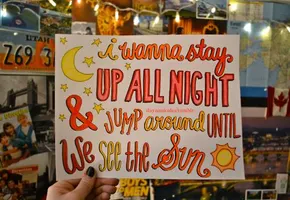 UTAH
269
i wanna stay
UP ALL NIGHT
& JUMP around UNTIL
We see the Sun